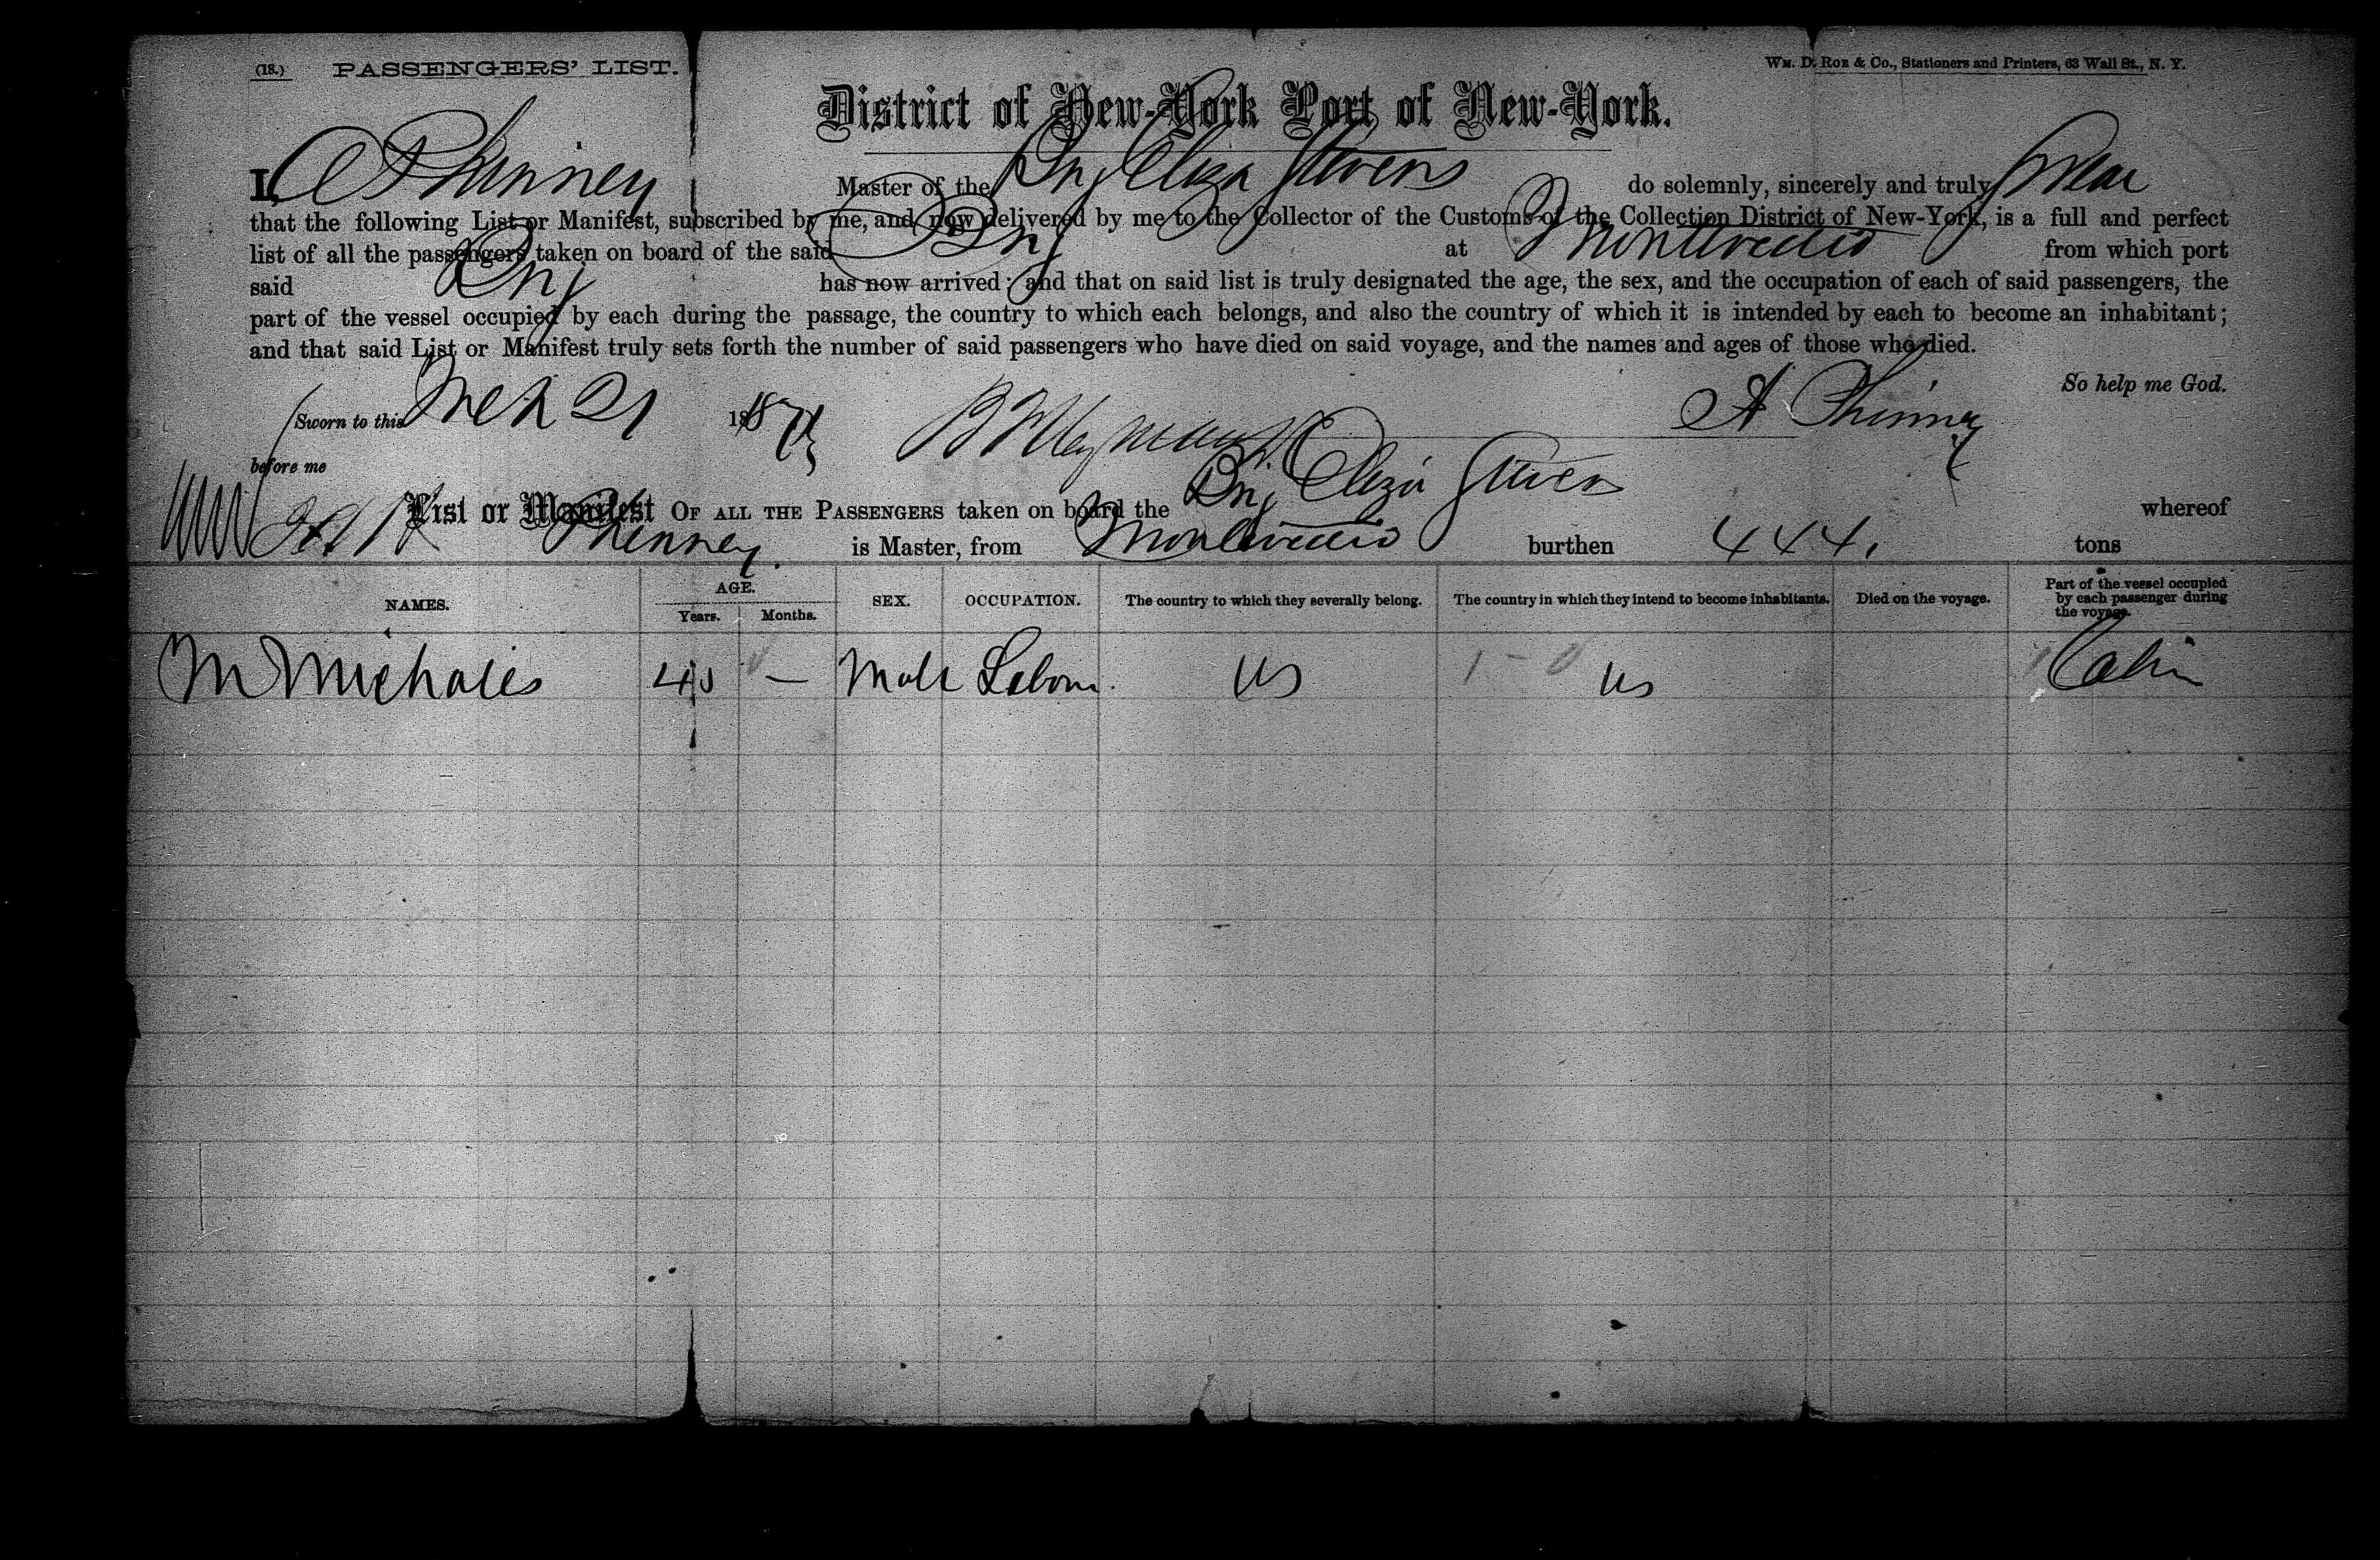 (18.) PASSENGERS' LIST.
WM. D. ROE & CO., Stationers and Printers, 63 Wall St., N. Y.
District of New-York Port of New-York.
I, A Phinney Master of the Brig Eliza Stevens do solemnly, sincerely and truly swear
that the following List or Manifest, subscribed by me, and now delivered by me to the Collector of the Customs of the Collection District of New-York, is a full and perfect
list of all the passengers taken on board of the said Brig at Montevedio from which port
said Brig has now arrived; and that on said list is truly designated the age, the sex, and the occupation of each of said passengers, the
part of the vessel occupied by each during the passage, the country to which each belongs, and also the country of which it is intended by each to become an inhabitant;
and that said List or Manifest truly sets forth the number of said passengers who have died on said voyage, and the names and ages of those who died.
So help me God.
Sworn to this Mch 21 187 A Phinney
before me
List or Manifest OF ALL THE PASSENGERS taken on board the Brig Eliza Stevens whereof
Phinney is Master, from Montevedio burthen 444. tons
NAMES. AGE. Years. Months. SEX. OCCUPATION. The country to which they severally belong. The country in which they intend to become inhabitants. Died on the voyage. Part of the vessel occupied by each passenger during the voyage.
M — Male Labour. US US Cabin